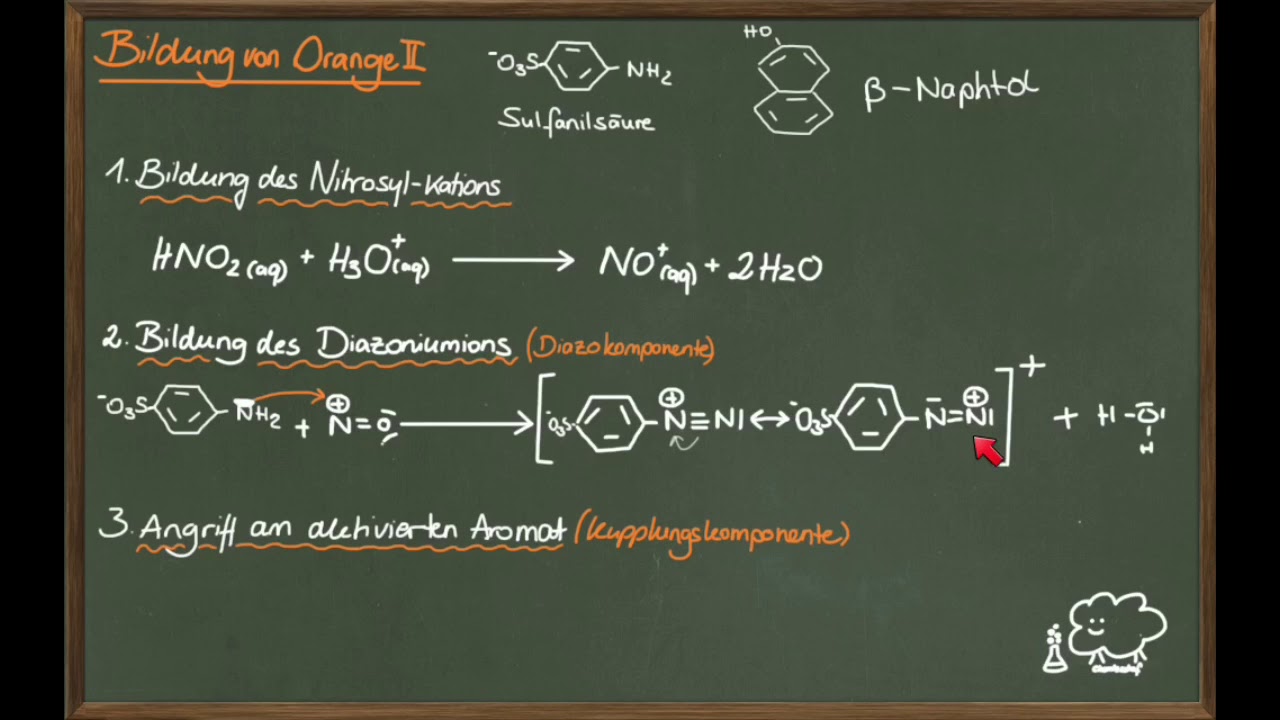 Bildung von Orange II
⁻O₃S NH₂
Sulfanilsäure
HO
β-Naphtol
1. Bildung des Nitrosyl-Kations
HNO₂(aq) + H₃O⁺(aq) ⟶ NO⁺(aq) + 2H₂O
2. Bildung des Diazoniumions (Diazokomponente)
⁻O₃S NH₂ + N=O ⟶ [⁻O₃S N≡N| ↔ ⁻O₃S N=N|]⁺ + H-O|
H
3. Angriff am aktivierten Aromat (Kupplungskomponente)